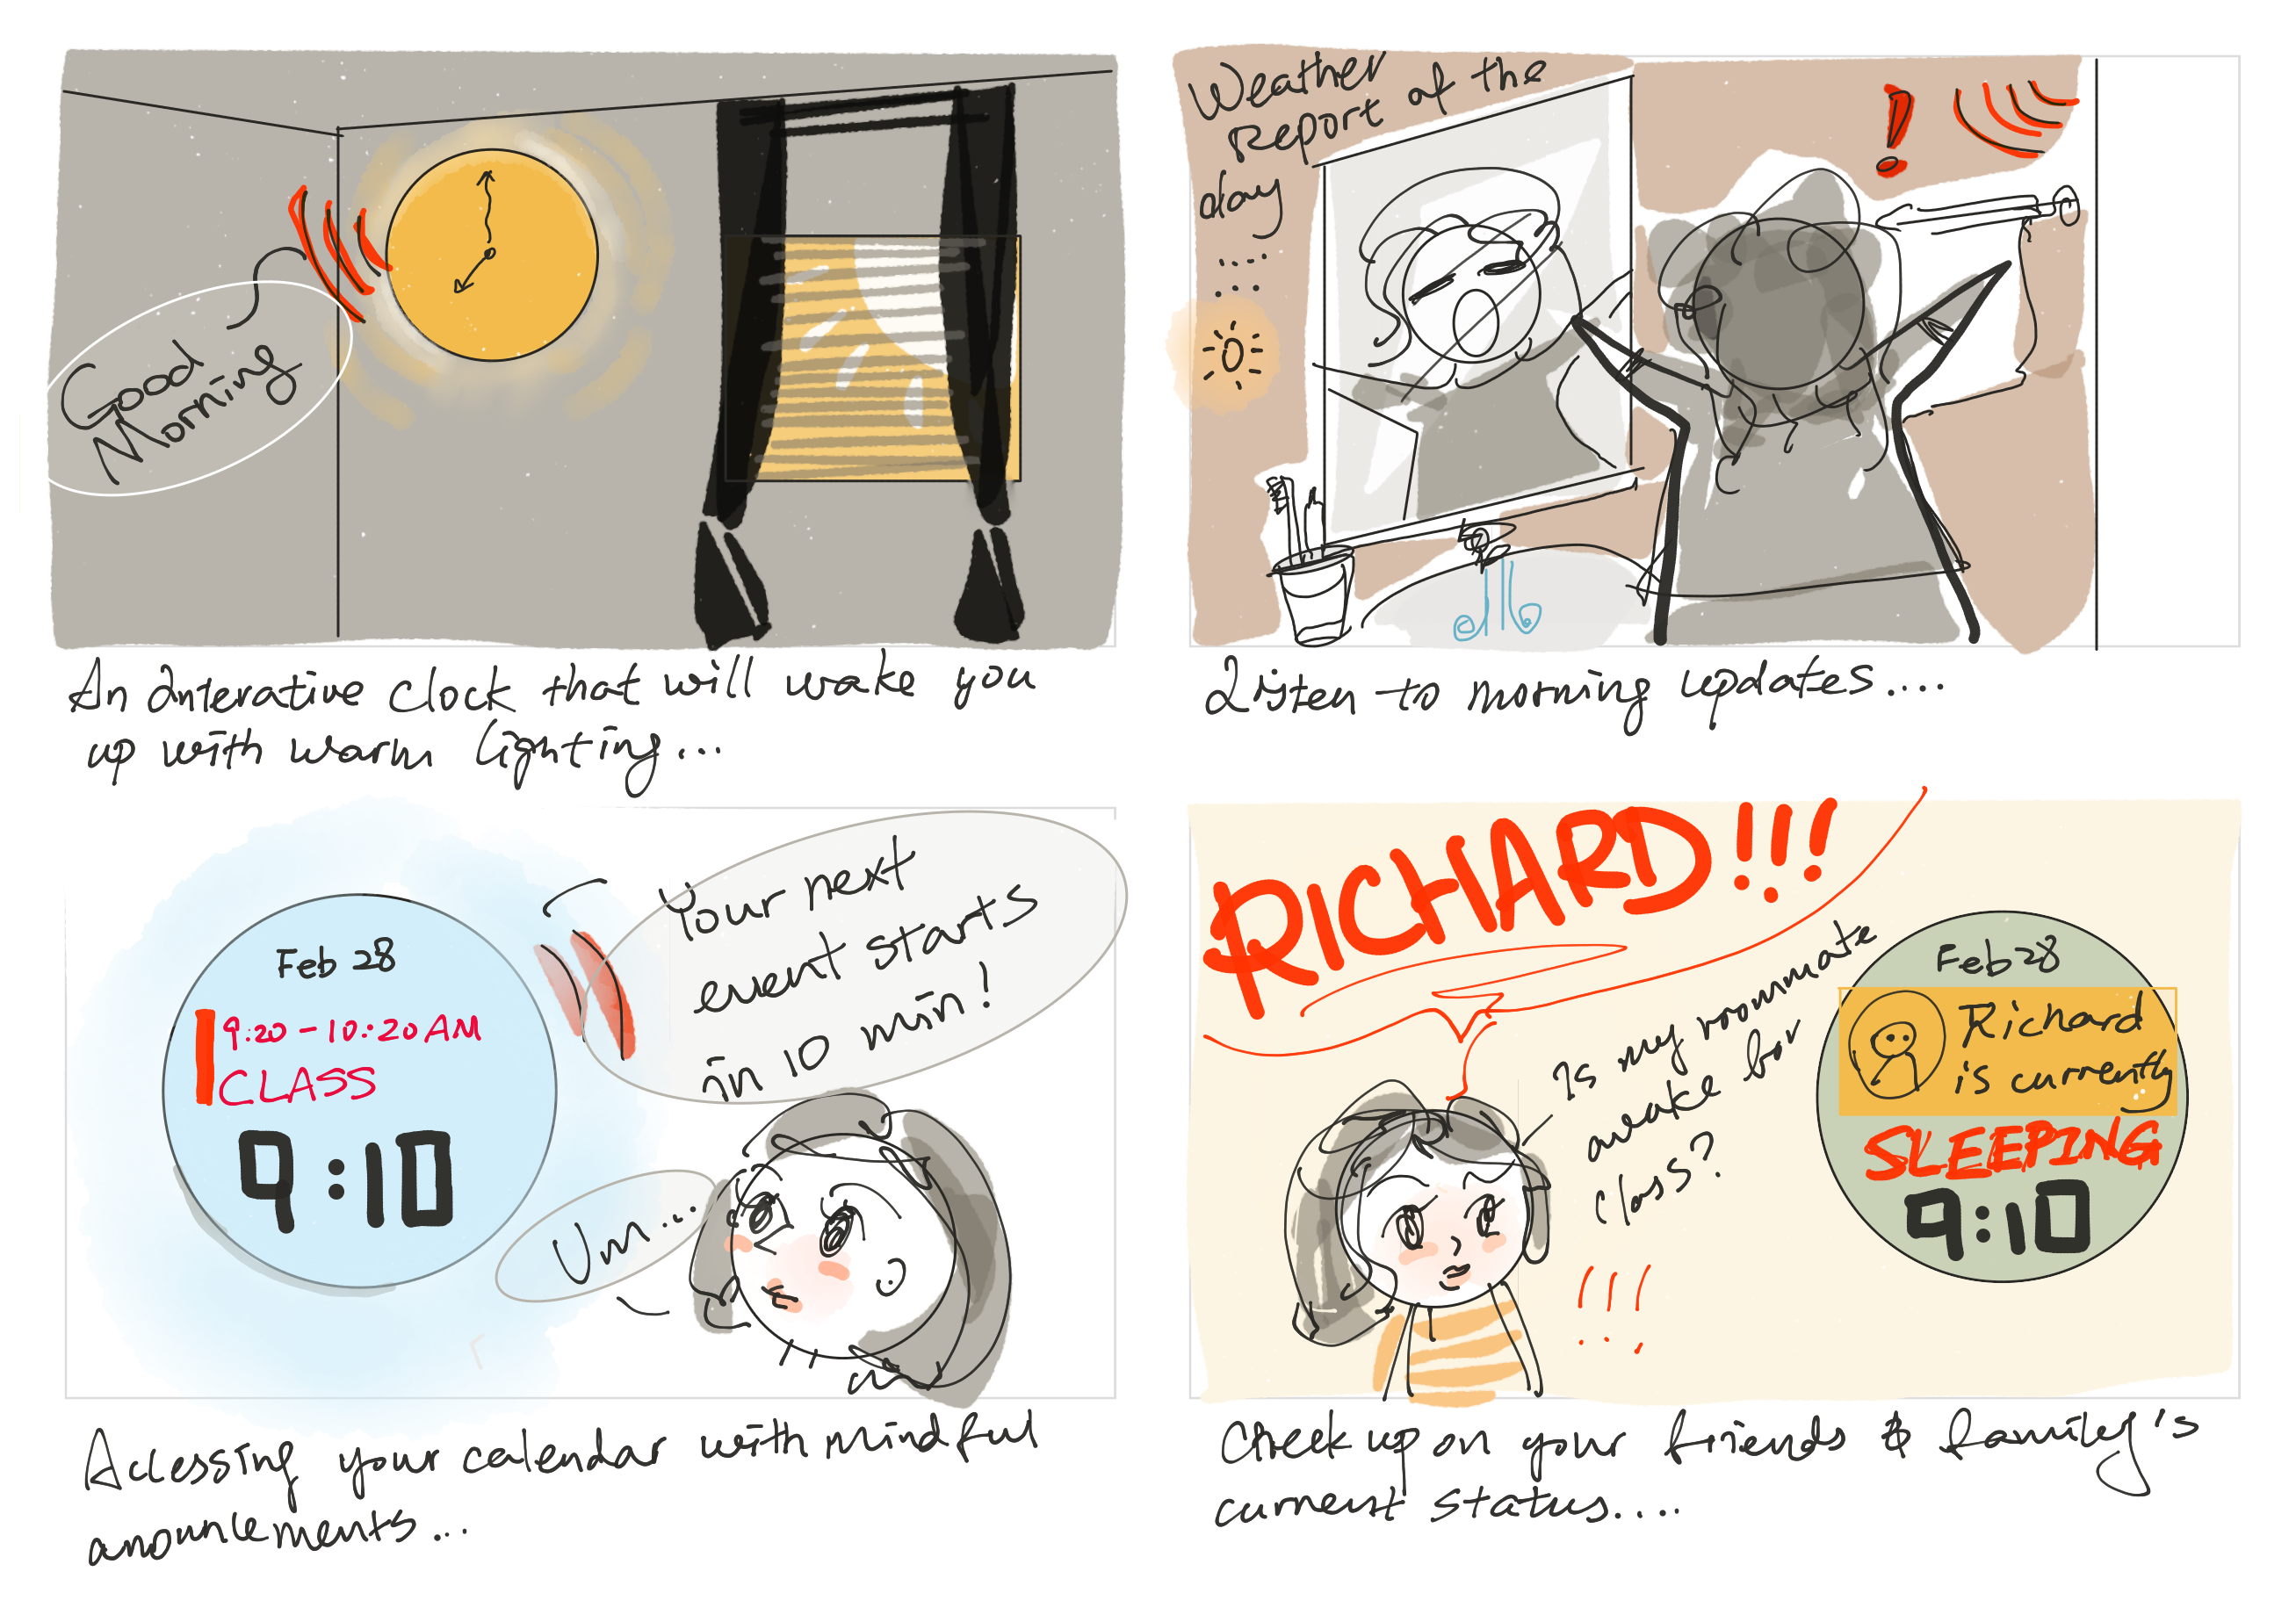 Good
Morning
An interative clock that will wake you
up with warm lighting...
Weather
Report of the
day
Listen to morning updates....
Feb 28
9:20 - 10:20 AM
CLASS
9:10
Your next
event starts
in 10 min!
Um...
Accessing your calendar with mindful
anouncements...
RICHARD!!!
Is my roommate
awake for
class?
!!!
Feb 28
Richard
is currently
SLEEPING
9:10
Check up on your friends & family's
current status....